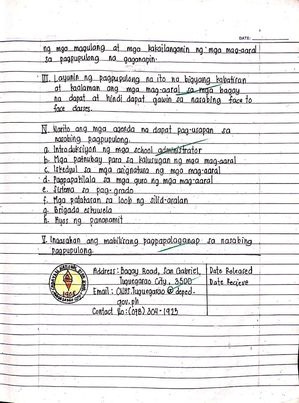 DATE:
ng mga magulang at mga kakailanganin ng mga mag-aaral
sa pagpupulong na gaganapin.
III. Layunin ng pagpupulong na ito na bigyang kabatiran
at kaalaman ang mga mag-aaral sa mga bagay
na dapat at hindi dapat gawin sa nasabing face to
face classes.
IV. Narito ang mga agenda na dapat pag-usapan sa
nasabing pagpupulong.
a. Introduksiyon ng mga school administrator
b. Mga patnubay para sa kalusugan ng mga mag-aaral
c. Iskedyul sa mga asignatura ng mga mag-aaral
d. Pagpapakilala sa mga guro ng mga mag-aaral
e. Sistema sa pag-grado
f. Mga patakaran sa loob ng silid-aralan
g. Brigada eskuwela
h. Ayos ng pananamit
V. Inaasahan ang mabilisang pagpapalaganap sa nasabing
pagpupulong.
Address: Bagay Road, San Gabriel,
Tuguegarao City, 3500
Email: Tuguegarao @ deped.
gov.ph
Contact No: (078) 304-1925
Date Released
Date Recieve